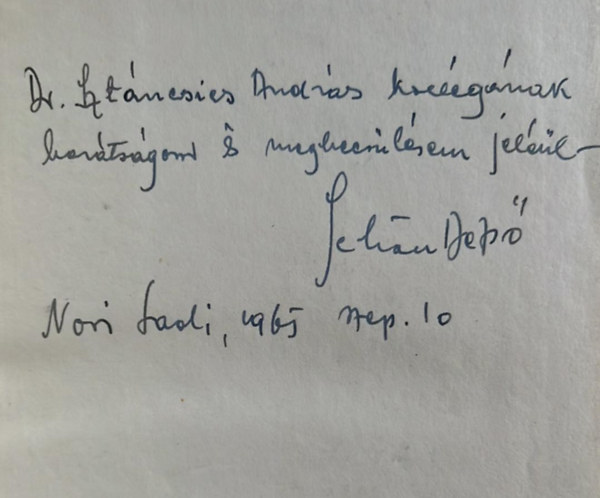 Dr. Sztáncsics András kollégának
barátságom s megbecsülésem jeléül
Dezső
Novi Sadi, 1965 szep. 10